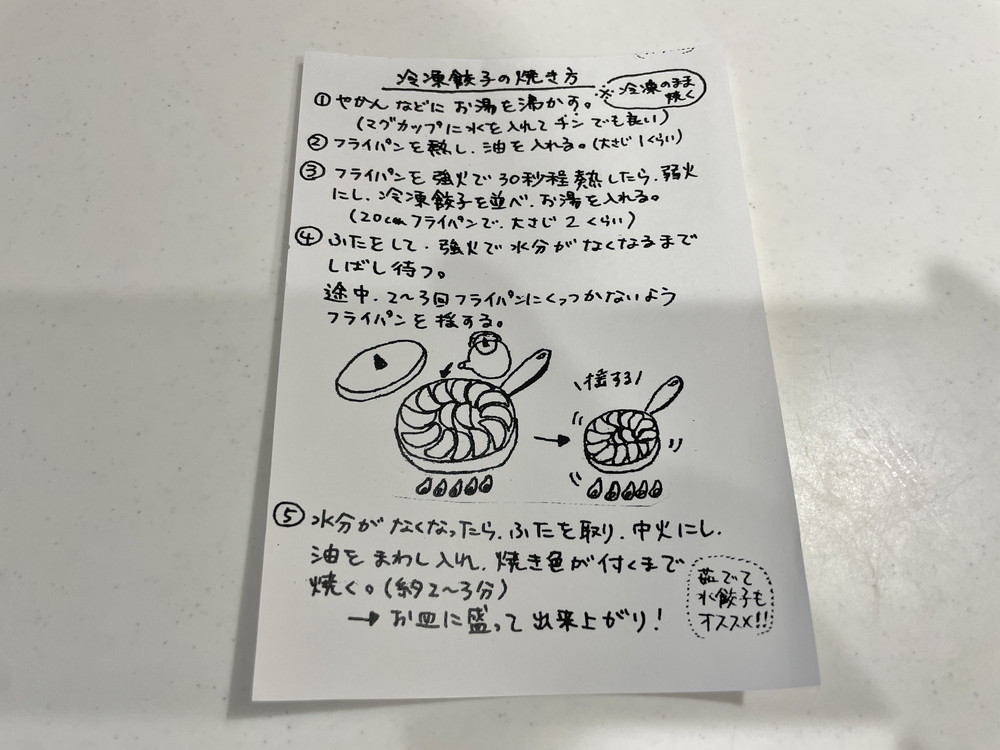 冷凍餃子の焼き方
※冷凍のまま
焼く
① やかんなどにお湯を沸かす。
(マグカップに水を入れてチンでも良い)
② フライパンを熱し、油を入れる。(大さじ1くらい)
③ フライパンを強火で30秒程熱したら、弱火
にし、冷凍餃子を並べ、お湯を入れる。
(20cmフライパンで、大さじ2くらい)
④ ふたをして、強火で水分がなくなるまで
しばし待つ。
途中、2〜3回フライパンにくっつかないよう
フライパンを揺する。
\揺する/
⑤ 水分がなくなったら、ふたを取り、中火にし、
油をまわし入れ、焼き色が付くまで
焼く。(約2〜3分)
→ お皿に盛って出来上がり!
茹でて
水餃子も
オススメ!!